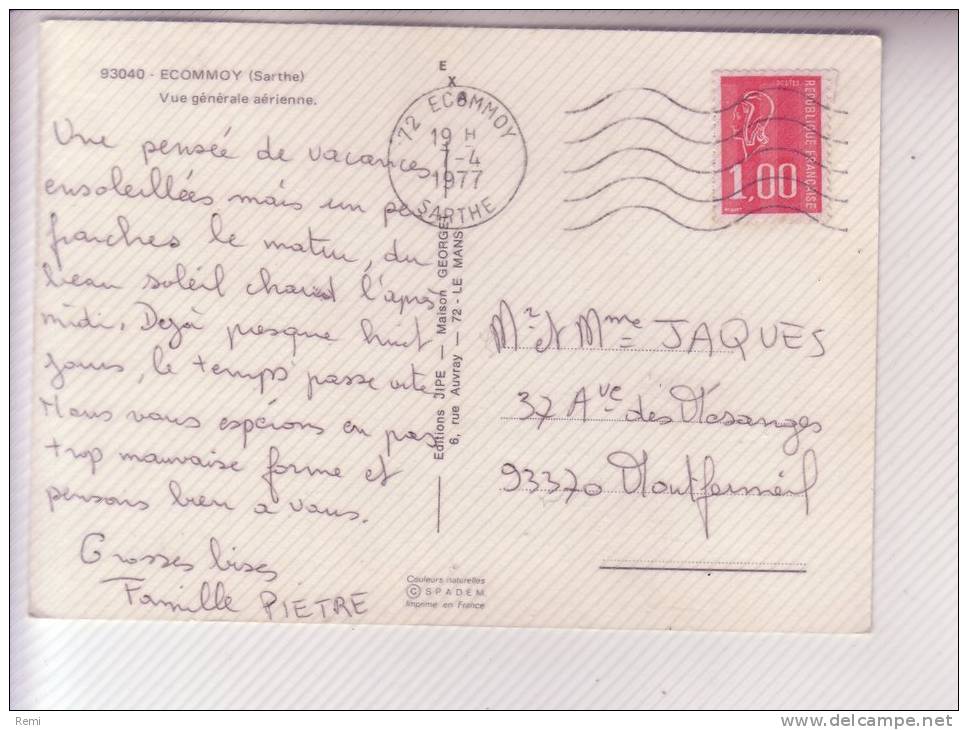 93040 - ECOMMOY (Sarthe)
Vue générale aérienne.
Une pensée de vacances
ensoleillées mais un peu
fraiches le matin, du
beau soleil chaud l'après
midi. Dejà presque huit
jours, le temps passe vite.
Nous vous espérons en pas
trop mauvaise forme et
pensons bien a vous.
Grosses bises
Famille PIETRE
E
X
72 ECOMMOY
19 H
7-4
1977
SARTHE
Editions JIPE — Maison GEORGET
6, rue Auvray — 72 - LE MANS
Couleurs naturelles
© S.P.A.D.E.M.
Imprimé en France
REPUBLIQUE FRANÇAISE
1,00
Mr et Mme JAQUES
37 Ave des Mesanges
93370 Montfermeil
Remi
http://www.delcampe.net